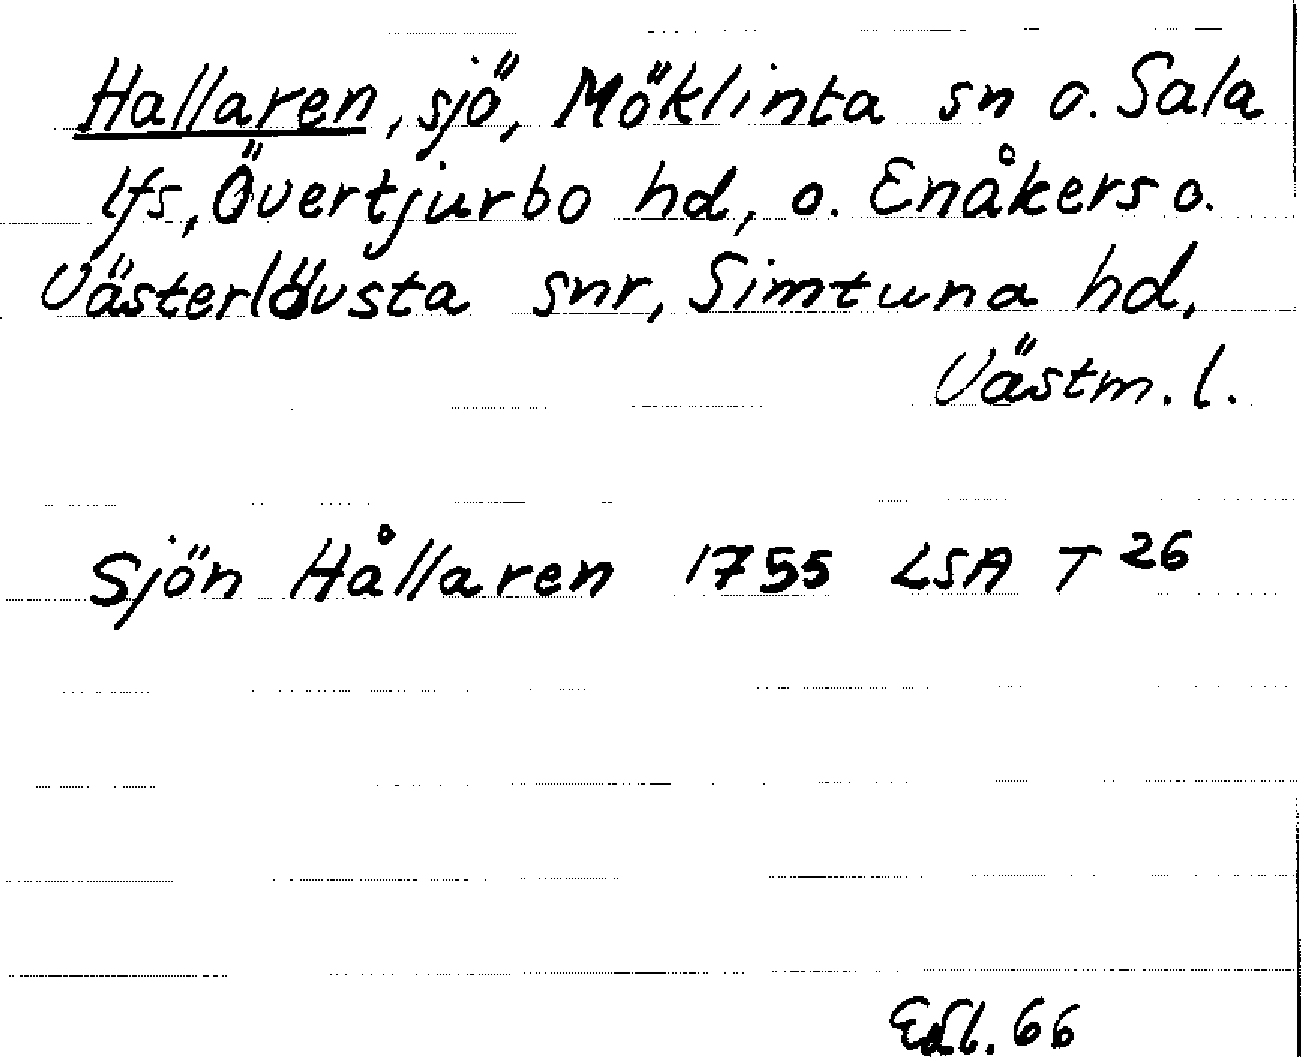 Hallaren, sjö, Möklinta sn o. Sala
lfs, Övertjurbo hd, o. Enåkers o.
Västerlövsta snr, Simtuna hd,
Västm. l.
Sjön Hållaren 1755 LSA T 26
66